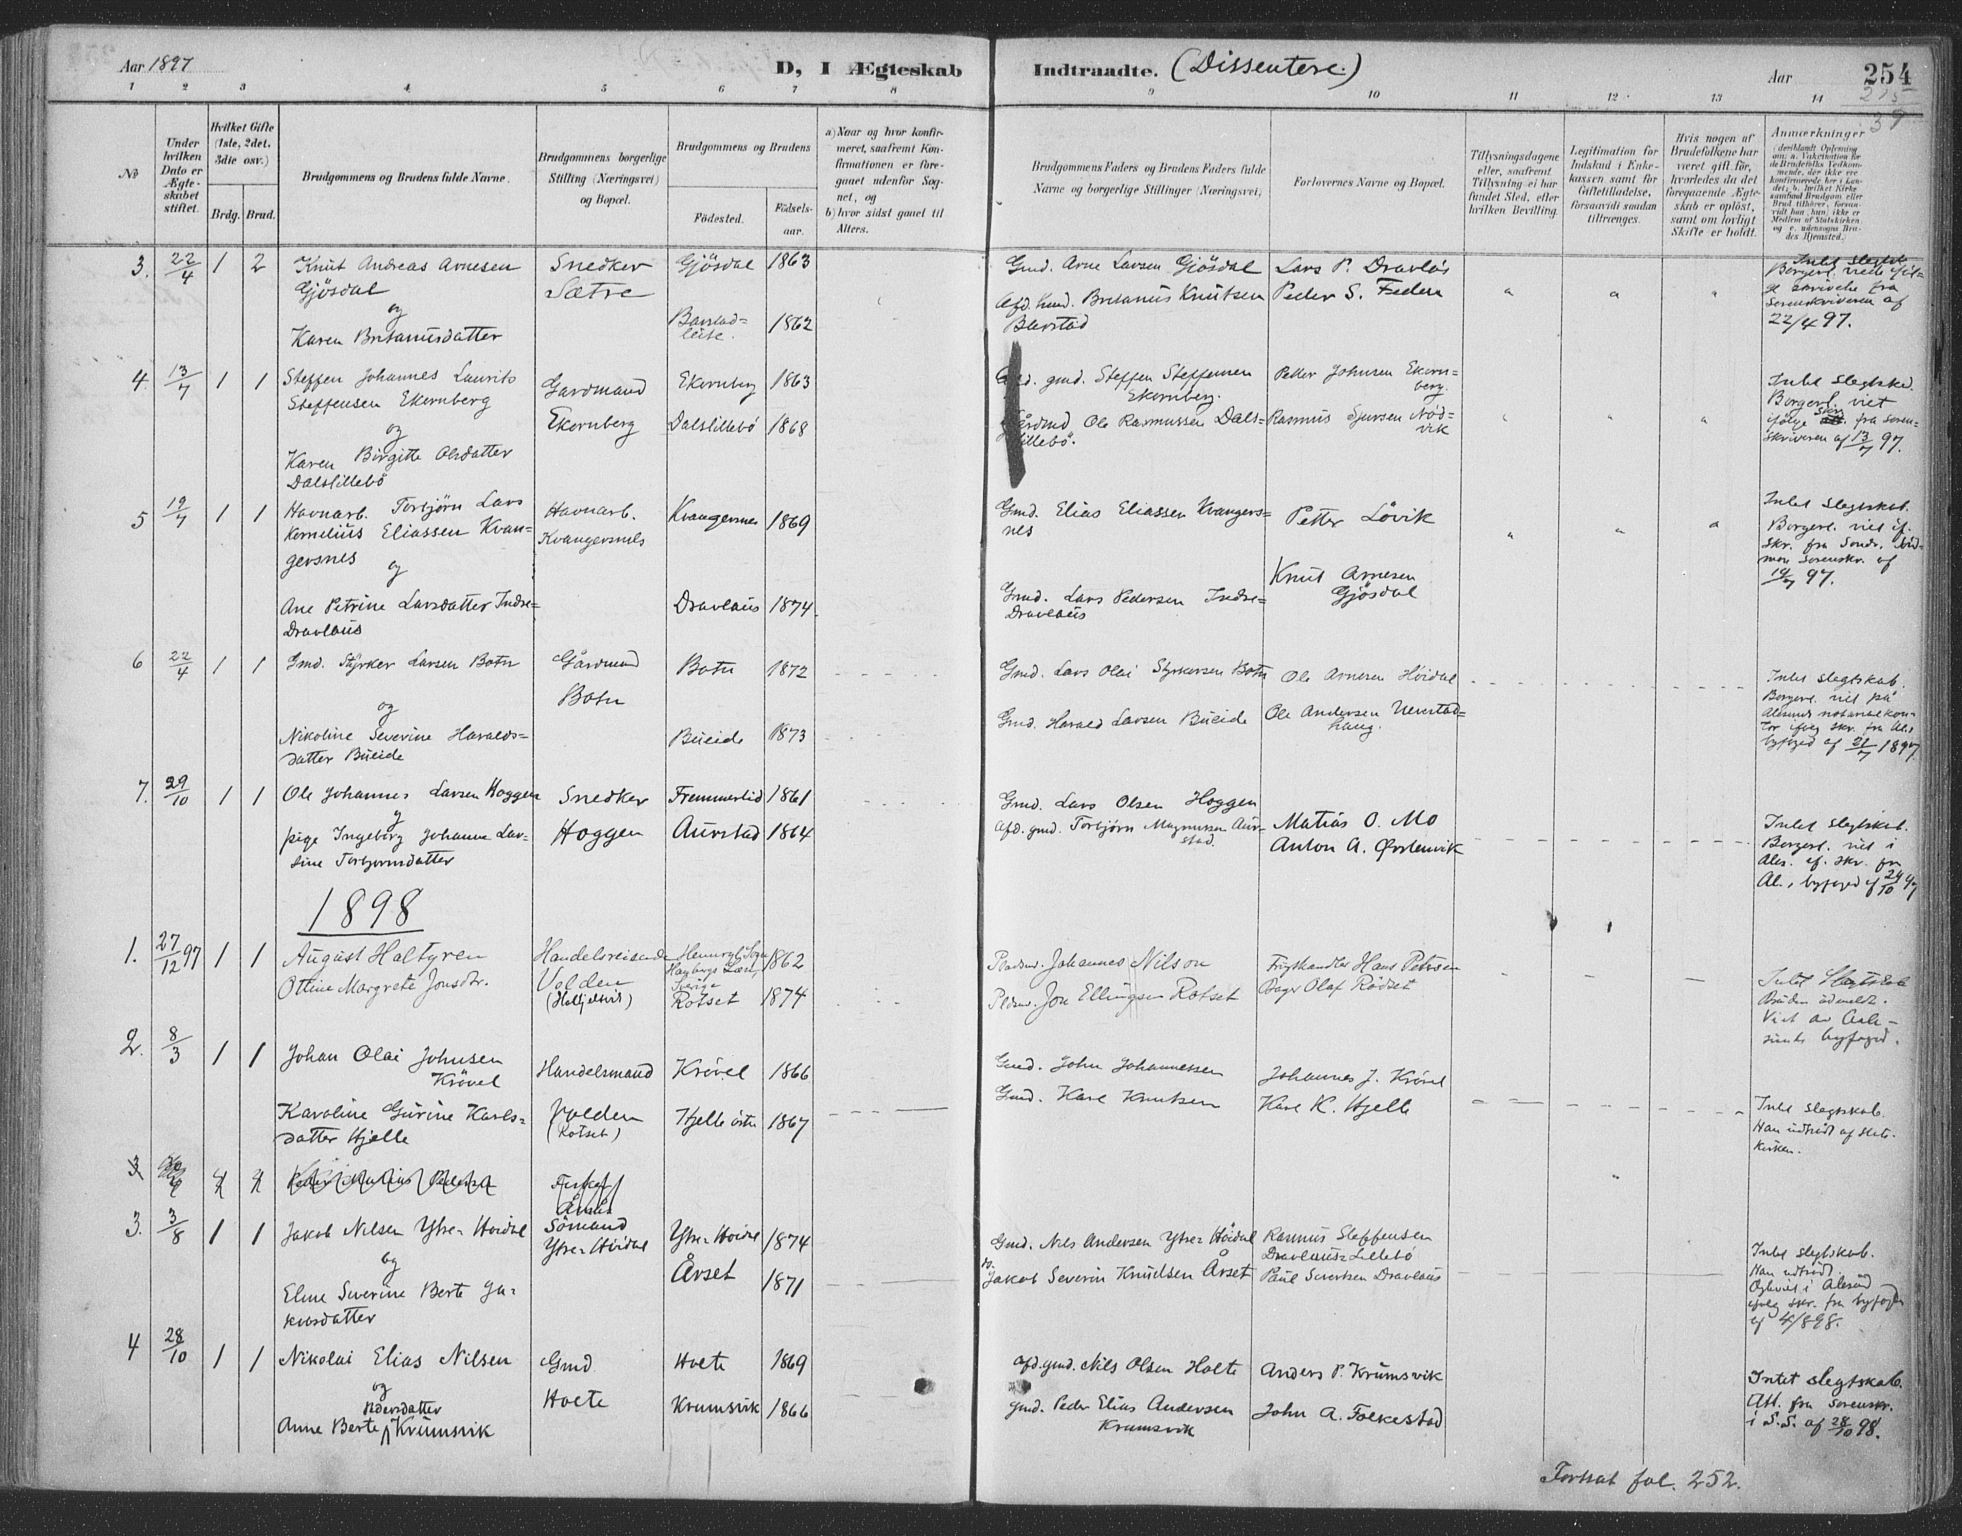 Aar 1897
D, I Ægteskab Indtraadte. (Dissentere.)
Aar
254
1 2 3 4 5 6 7 8 9 10 11 12 13 14
No
Under hvilken Dato er Ægteskabet stiftet.
Hvilket Gifte (1ste, 2det, 3die osv.)
Brdg. Brud.
Brudgommens og Brudens fulde Navne.
Brudgommens borgerlige Stilling (Næringsvei) og Bopæl.
Brudgommens og Brudens
Fødested.
Fødselsaar.
a) Naar og hvor konfirmeret, saafremt Konfirmationen er foregaaet udenfor Sognet, og
b) hvor sidst gaaet til Alters.
Brudgommens Faders og Brudens Faders fulde Navne og borgerlige Stillinger (Næringsvei)
Forlovernes Navne og Bopæl.
Tillysningsdagene eller, saafremt Tillysning ei har fundet Sted, efter hvilken Bevilling.
Legitimation for Indskud i Enkekassen samt for Giftetilladelse, forsaavidt saadan tiltrænges.
Hvis nogen af Brudefolkene har været gift før, hvorledes da det foregaaende Ægteskab er opløst, samt om lovligt Skifte er holdt.
Anmærkninger
3. 22/4 1 2 Knut Andreas Arnesen Gjösdal
og
Karen Britanusdatter
Snedker
Sætre
Gjösdal 1863
Barstadleite. 1862
Gmd. Arne Larsen Gjösdal
Afd. hmd. Britanus Knutsen
Lars P. Dravlös
Peder S. Feden
Intet slegtsk.
Borgerl. viede
skrivelse fra
Sorenskriveren af
22/4 97.
4. 13/7 1 1 Steffen Johannes Laurits
Steffensen Ekornberg
og
Karen Birgitte Olsdatter
Dalslillebö
Gardmand
Ekornberg
Ekornberg 1863
Dalslillebö 1868
gmd. Steffen Steffensen
Ekornberg.
Gårdmd Ole Rasmussen Dalslillebö.
Petter Johnsen Ekornberg
Rasmus Sjursen Nödvik
Intet slegtskb.
Borgerl. viet
ifölge skr. fra sorenskriveren af 13/7 97.
5 19/7 1 1 Havnarb. Torbjörn Lars
Kornelius Eliassen Kvangersnes
og
Ane Petrine Larsdatter Indre-Dravlaus
Havnarb.
Kvangersnes
Kvangersnes 1869
Dravlaus 1874.
Gmd. Elias Eliassen Kvangersnes
Gmd. Lars Pedersen Indre-Dravlaus
Petter Lövik
Knut Arnesen
Gjösdal
Intet slegtskab.
Borgerl. viet if.
skr. fra Söndr. Söndmör Sorenskr. af
19/7 97.
6 22/4 1 1 Gmd. Styrker Larsen Botn
og
Nikoline Severine Haraldsdatter Bueide
Gårdmand
Botn
Botn 1872
Bueide 1873
Gmd. Lars Olai Styrkersen Botn
Gmd. Harald Larsen Bueide
Ole Arnesen Höidal
Ole Andersen Velsvadhaug.
Intet slegtskab.
Borgerl. viet på
Alesunds notarialkontor ifölg skr. fra Ales.
byfoged af 21/7 1897.
7. 29/10 1 1 Ole Johannes Larsen Hoggen
og
pige Ingeborg Johanne Larsine Torbjørnsdatter
Snedker
Hoggen
Fremmerlid 1861
Aurstad 1864
Gmd. Lars Olsen Hoggen
Afd. gmd. Torbjörn Magnussen Aurstad.
Matias O. Mo
Anton A. Ørstenvik
Intet slegtskab.
Borgerl. viet i
Ales. ef. skr. fra
Al., byfoged af 29/10 97
1898
1. 27/12 97 1 1 August Haltyren
Ottine Margrete Jonsdtr.
Handelsreisende
Volden
Sverige 1862
Rotset 1874
Johannes Nilson
Jon Ellingsen Rotset
Hans Petersen
Olaf Rödset
Intet Slegtskab
Bruden udmeldt.
Viet av Aalesunds byfoged.
2. 8/3 1 1 Johan Olai Johnsen
Krövel
Karoline Gurine Karlsdatter Hjelle
Handelsmand
Volden
(Rotset)
Krövel 1866
Hjelle östre 1867
Gmd. John Johannessen
Gmd. Karl Knutsen
Johannes J. Krövel
Karl K. Hjelle
Intet slegtskab.
Han udtrådt af statskirken.
3. 3/8 1 1 Jakob Nilsen Ytre-Höidal
og
Eline Severine Berte Jakobsdatter
Sömand
Ytre-Höidal
Ytre-Höidal 1874
Årset 1871
Gmd. Nils Andersen Ytre-Höidal
Jakob Severin Knudsen Årset
Rasmus Steffensen
Dravlaus-Lillebö
Paul Sivertsen Dravlaus
Intet slegtskab.
Han udtrådt.
Ogleviet i Alesund
ifölg skr. fra byfogden
af 4/8 98.
4 28/10 1 1 Nikolai Elias Nilsen
og
Anne Berte Pedersdatter Krumsvik
Gmd
Holte
Holte 1869
Krumsvik 1866
Afd. gmd. Nils Olsen Holte
gmd. Peder Elias Andersen
Krumsvik
Anders P. Krumsvik
John A. Folkestad
Intet slegtskab.
Att. fra Sorenskr.
i S.S. af 28/10 98.
Fortsat fol. 252.